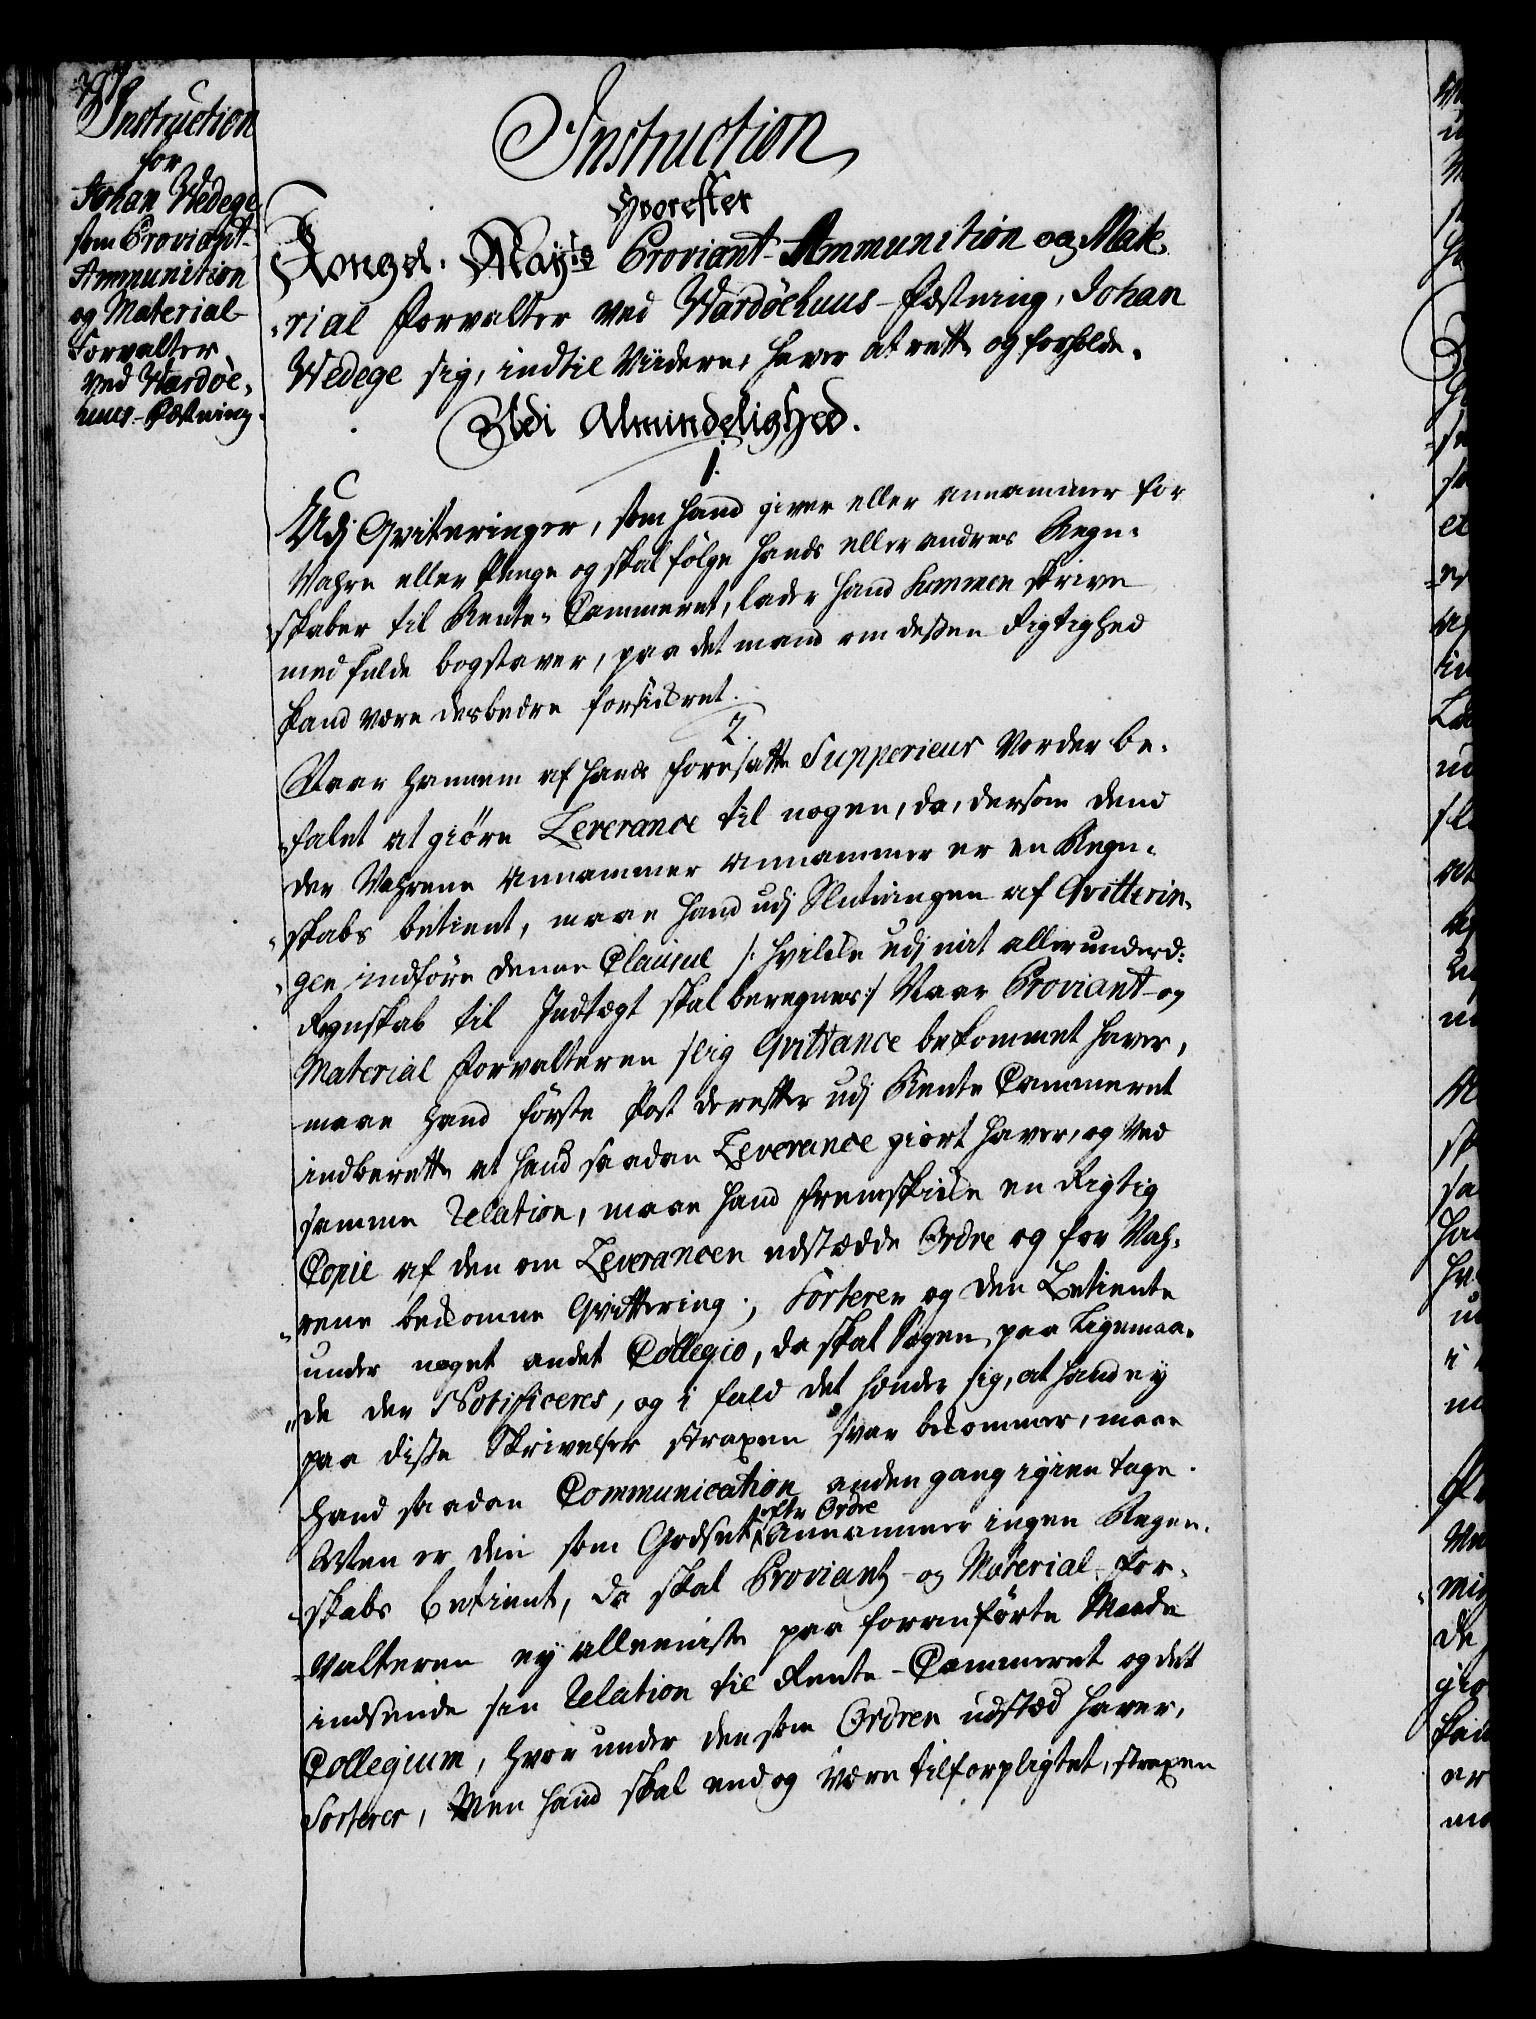 Instruction
for
Johan Wedege
som Proviant-
Ammunition
og Material-
Forvalter
ved Wardøe-
huus-Fæstning.
Instruction
Hvorefter
Kongel. May:ts Proviant-Ammunition og Mate-
rial Forvalter ved Wardøehuus-Fæstning, Johan
Wedege sig, indtil Viidere, haver at rette og forholde.
Udi Almindelighed.
1.
Udj Qvitteringer, som hand giver eller annammer for
Vahre eller Penge og skal følge hands eller andres Regn-
skaber til Rente-Cammeret, lader hand Summen skrive
med fulde bogstaver, paa det mand om deßen Rigtighed
kand være desbedre forsickret.
2.
Naar hannem af hands foresatte Supperieur vorder be-
falet at giøre Leverance til nogen, da, dersom dend
der Vahrene annammer er en Regn-
skabs betient, maae hand udj Slutningen af Qvitterin-
gen indføre denne Clausul /: hvilcke udj mit allerunderd:
Regnskab til Indtægt skal beregnes:/ Naar Proviant- og
Material Forvalteren slig Qvittance bekommet haver,
maae hand første Post derefter udj Rente Cammeret
indberette at hand saadan Leverance giort haver, og ved
samme Relation, maae hand fremskicke en Rigtig
Copie af den om Leverancen udstædde Ordre og for Vah-
rene bekomne Qvittering; Sorterer og den Betiente
under noget andet Collegio, da skal Sagen paa Ligemaa-
de der Notificeres, og i fald det hender sig, at hand ey
paa diße Skrivelser straxen svar bekommer, maae
hand saadan Communication anden gang igien tage.
Men er den som Godset efter Ordre annammer ingen Regen-
skabs Betient, da skal Proviant- og Material-For-
valteren ey alleeniste paa foranførte Maade
indsende sin Relation til Rente-Cammeret og det
Collegium, hvor under den som Ordren udstæd haver,
Sorterer, Men hand skal end og være tilforpligtet, straxen